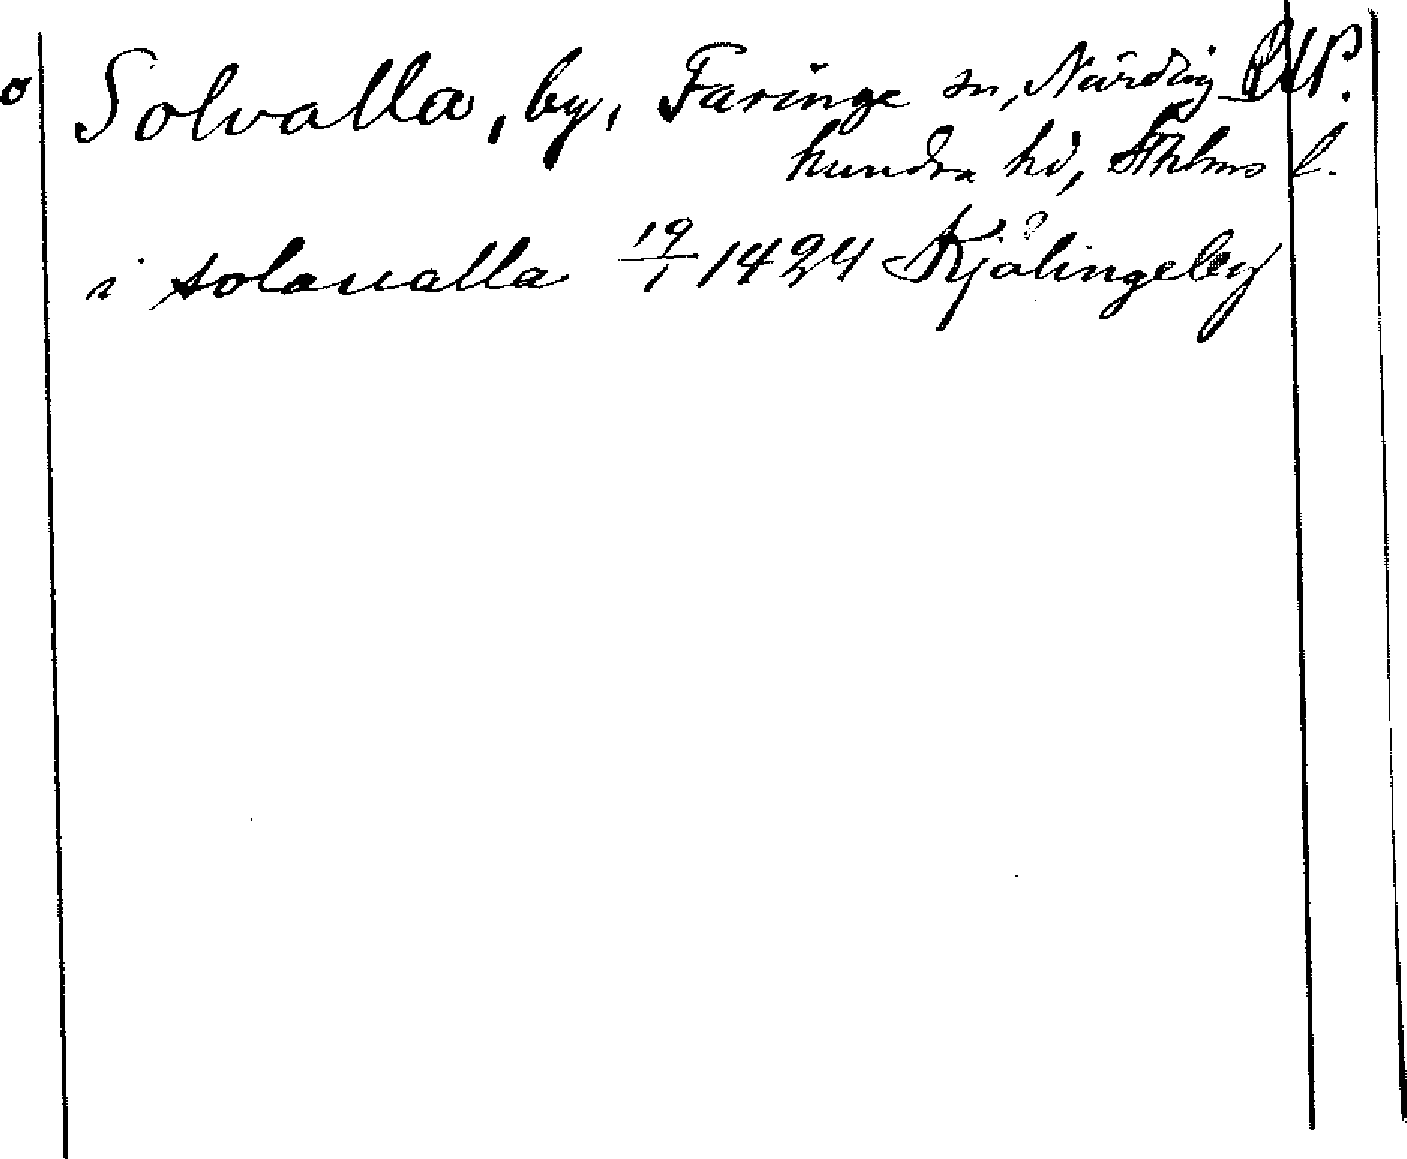 o Solvalla, by, Faringe sn, Närding
hundra hd, Sthlms l.
i solaualla 19/1 1424 Kjölingeby